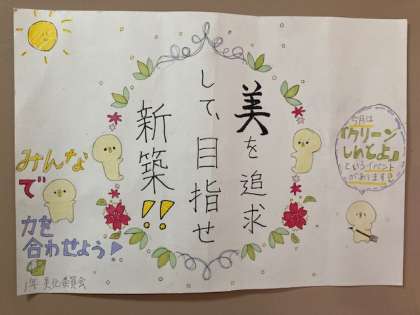 美を追求
して、目指せ
新築!!
今月は
「クリーン
しませよ」
というイベント
があります!!
みんな
で
力を
合わせよう!
1年 美化委員会